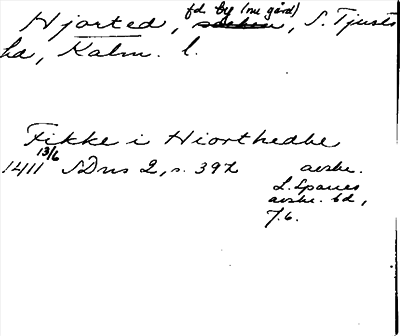 Hjorted, fd by (nu gård), S. Tjusts
hd, Kalm. l.
Fikke i Hiorthedhe
13/6
1411 SDns 2, s. 392 avskr.
L. Sparres
avskr. bd,
7.6.